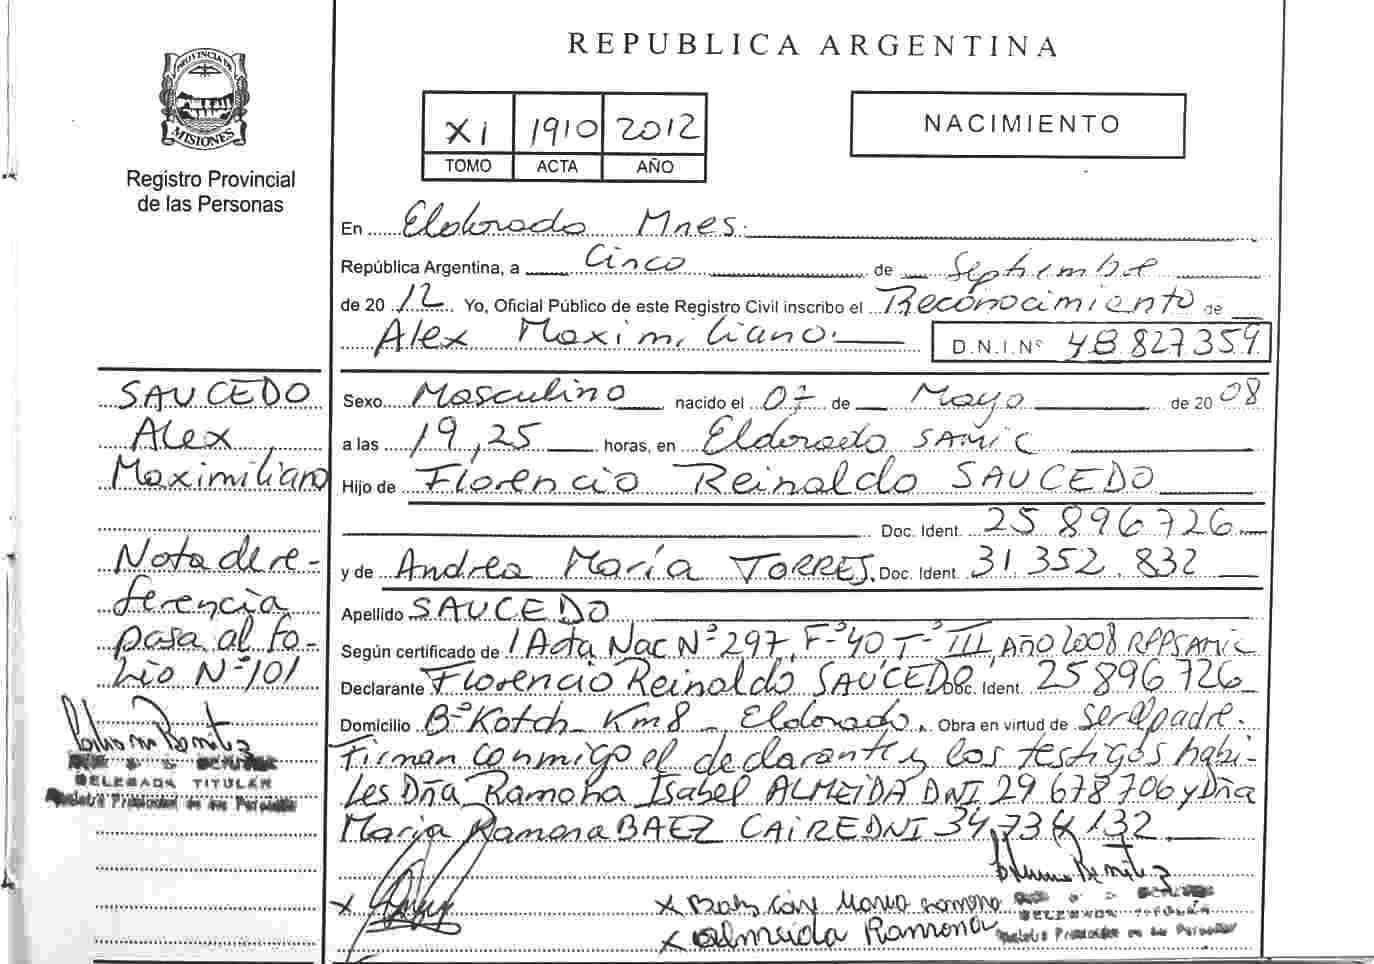 PROVINCIA DE
MISIONES
Registro Provincial
de las Personas
SAUCEDO
Alex
Maximiliano
Nota de re-
ferencia
pasa al fo-
lio Nº 101
DELEGADA TITULAR
REPUBLICA ARGENTINA
XI 1910 2012
TOMO ACTA AÑO
NACIMIENTO
En Eldorado Mnes.
República Argentina, a Cinco de Septiembre
de 2012 Yo, Oficial Público de este Registro Civil inscribo el Reconocimiento de
Alex Maximiliano. D.N.I.Nº 48 827359
Sexo Masculino nacido el 07 de Mayo de 2008
a las 19,25 horas, en Eldorado SAMIC
Hijo de Florencio Reinaldo SAUCEDO
Doc. Ident. 25 896 726
y de Andrea María TORRES. Doc. Ident. 31 352 832
Apellido SAUCEDO
Según certificado de / Acta Nac Nº 297, Fº 40 Tº III, AÑO 2008 RPPSAMIC
Declarante Florencio Reinaldo SAUCEDO Doc. Ident. 25 896 726
Domicilio Bº Kotch Km 8 - Eldorado. Obra en virtud de ser el padre.
Firman conmigo el declarante y los testigos habi-
les Dña Ramona Isabel ALMEIDA DNI 29 678 706 y Dña
Maria Ramona BAEZ CAIRE DNI 34 734 132
X X Maria Ramona
X Almeida Ramona
DELEGADA TITULAR